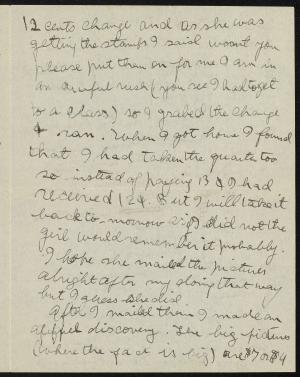 12 cents change and as she was
getting the stamps I said wont you
please put them on for me I am in
an awful rush (you see I had to get
to a class) so I grabed the change
& ran. When I got home I found
that I had taken the quarter too
so instead of paying 13¢ I had
received 12¢. But I will take it
back to-morrow if I did not the
girl would remember it probably.
I hope she mailed the pictures
alright after my doing that way
but I guess she did.
After I mailed them I made an
awful discovery. The big pictures
(where the face is big) are $7 or $4